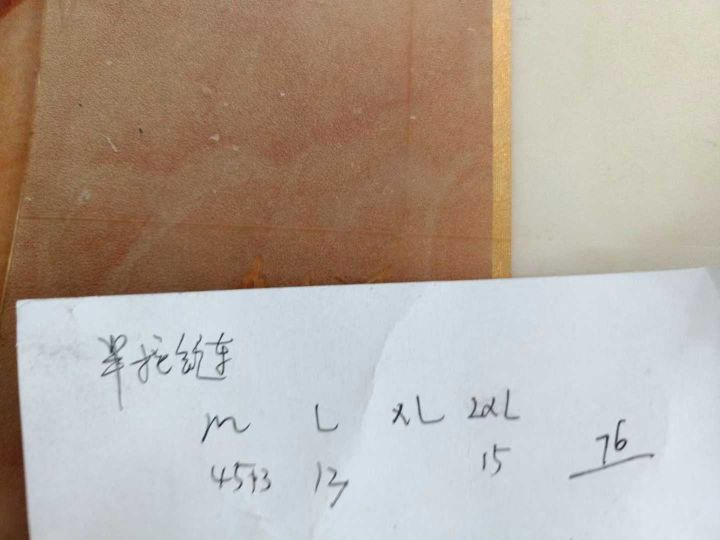 单挖缝车
M L XL 2XL
45+3 13 15 76